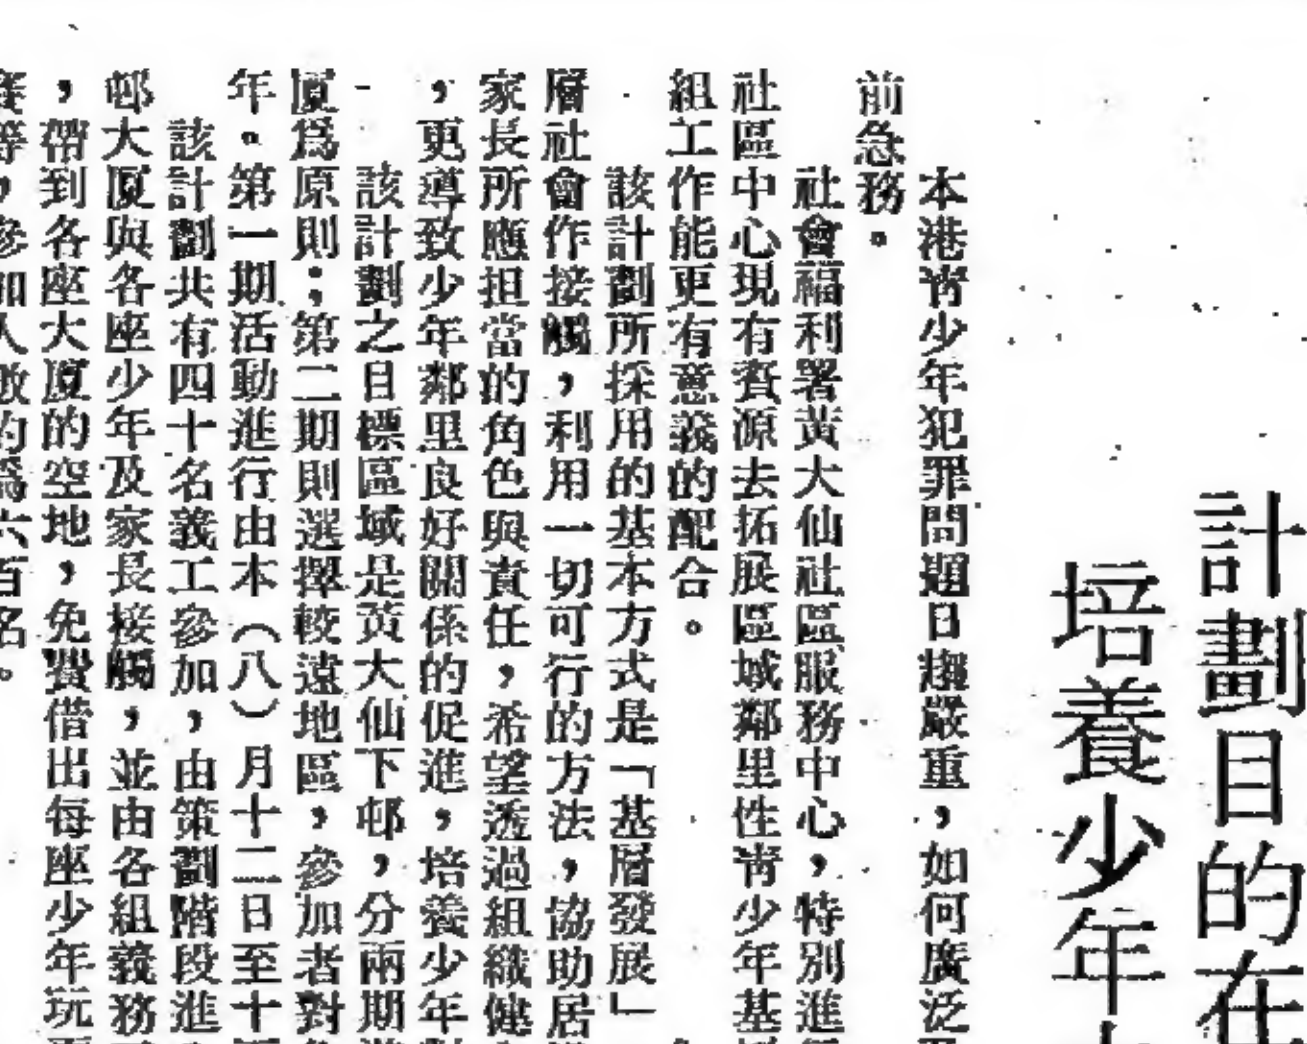 計劃目的在
培養少年
本港靑少年犯罪問題日趨嚴重，如何廣泛
前急務。
社會福利署黃大仙社區服務中心，特別進
社區中心現有資源去拓展區域鄰里性靑少年基
組工作能更有意義的配合。
該計劃所採用的基本方式是「基層發展」
層社會作接觸，利用一切可行的方法，協助居
家長所應担當的角色與責任，希望透過組織健
，更導致少年鄰里良好關係的促進，培養少年
該計劃之目標區域是黃大仙下邨，分兩期
厦爲原則；第二期則選擇較遠地區，參加者對
年。第一期活動進行由本（八）月十二日至十
該計劃共有四十名義工參加，由策劃階段進
邨大厦與各座少年及家長接觸，並由各組義務
，帶到各座大厦的空地，免費借出每座少年玩
賽等，參加人數約爲六百名。